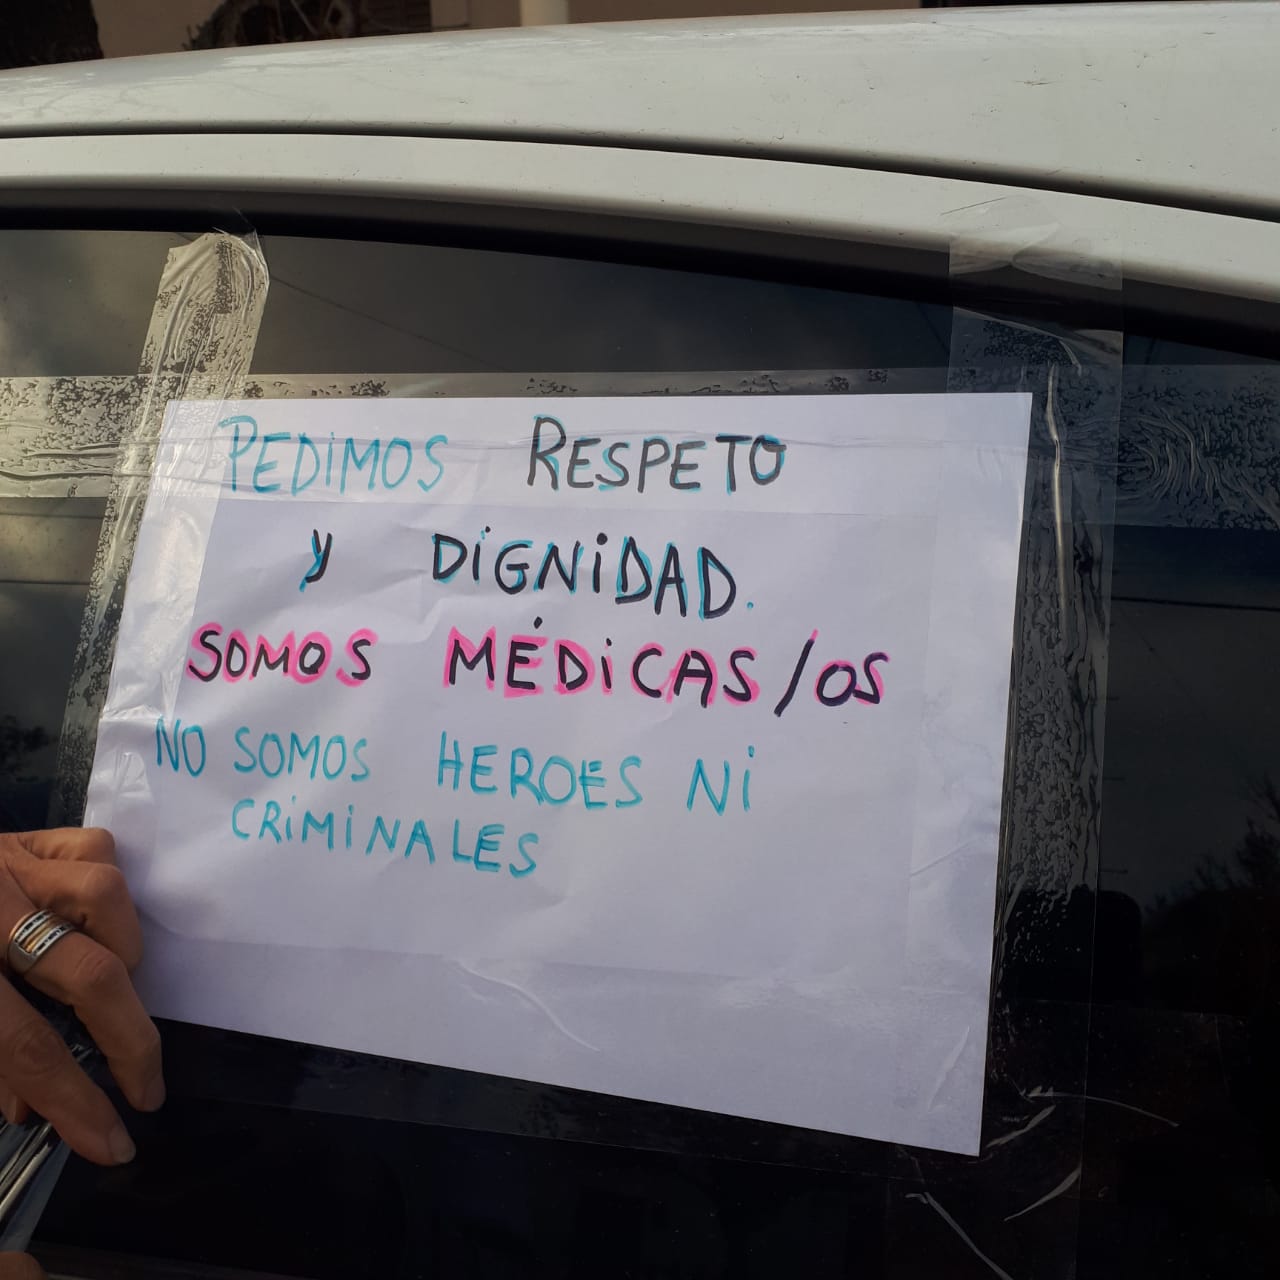 PEDIMOS RESPETO
y DIGNIDAD.
SOMOS MÉDICAS/OS
NO SOMOS HEROES NI
CRIMINALES